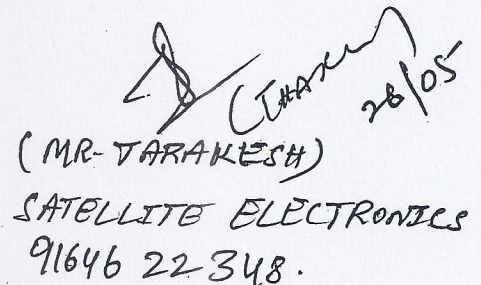 28/05
(MR-TARAKESH)
SATELLITE ELECTRONICS
91646 22348.